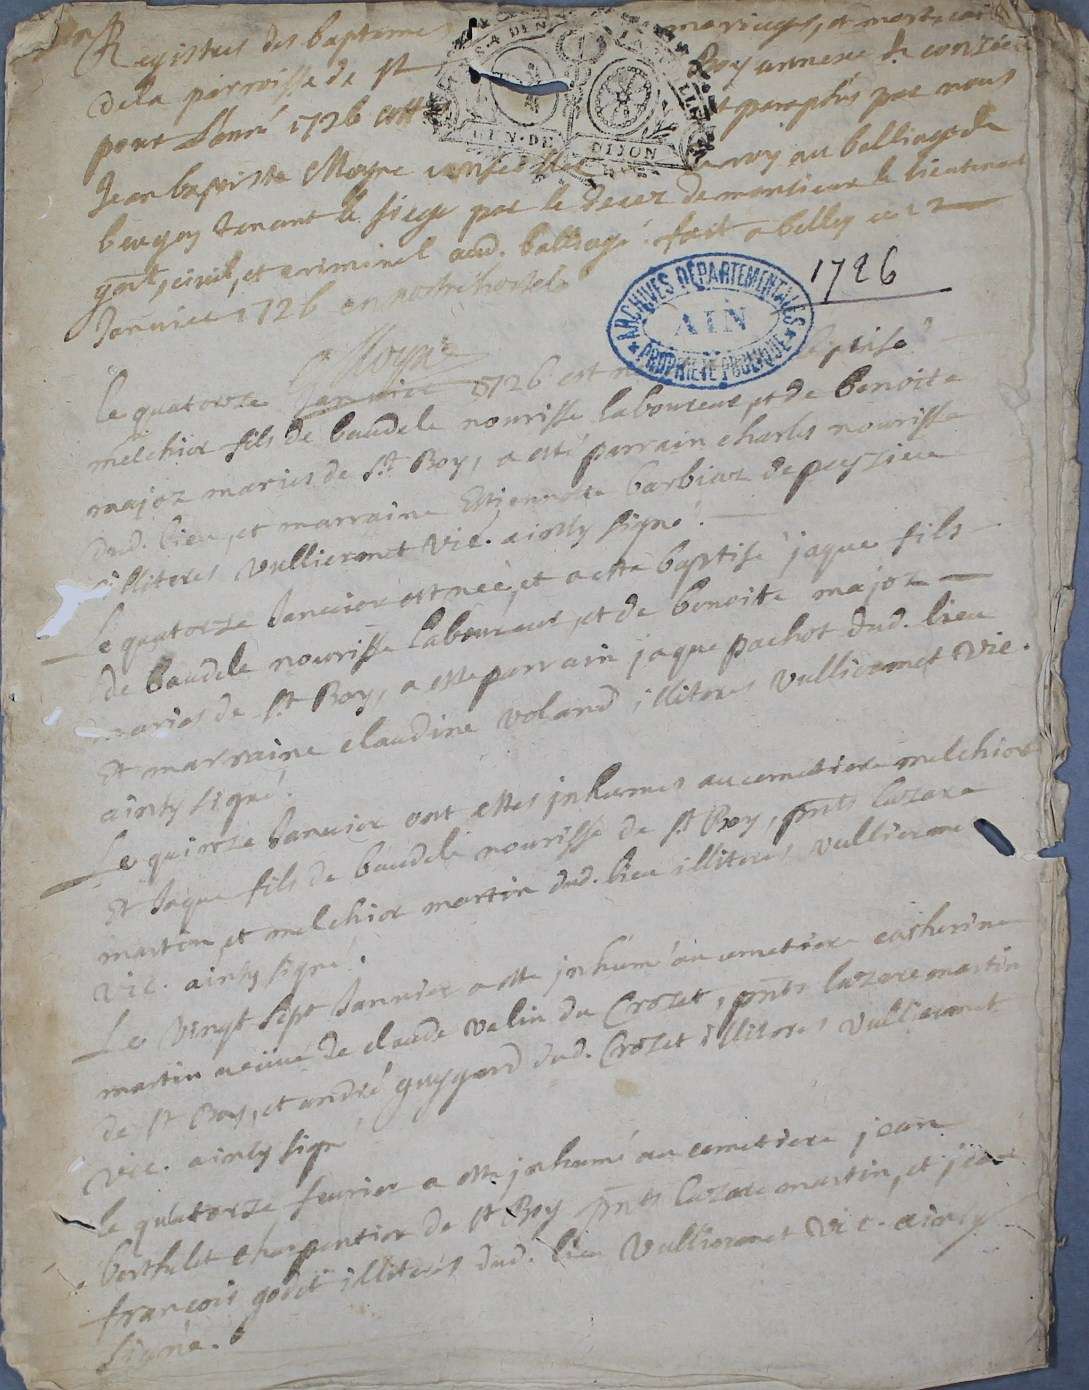 Registres des baptemes mariages, et mortuaires
dela parroisse de st Boy annexe de conzieu
pour Lanné 1726 cotté et paraphés par nous
Jean baptiste Moyne conseiller du roy au balliage de
beugey tenant le siege par le decez de monsieur le lieutenant
gnal, civil, et criminel aud. balliage fait a belley ce 2
Janvier 1726 en nostre hostel
GEN · DE · DIJON
Moyne
ARCHIVES DÉPARTEMENTALES
AIN
PROPRIÉTÉ PUBLIQUE
1726
le quatorze Janvier 1726 est né baptisé
melchior fils de baudele nourisse laboureur, et de benoite
majoz maries de st Boy, a esté parrain charles nourisse
dud. lieu, et marraine Estiennete barbiaz de peyzieu
illiteres Vullieromet Vic. ainsy signé.
Le quatorze Janvier est neé, et a esté baptisé jaque fils
de baudele nourisse laboureur, et de benoite majoz
maries de st Boy, a este parrain jaque pachot dud. lieu
Et marraine claudine voland illiteres Vullieromet Vic.
ainsy signé.
Le quinze Janvier ont estes inhumes au cemetiere melchior
Et Jaque fils de baudele nourisse de st Boy, pnts lazare
martin, et melchior martin dud. lieu illiteres vullierome
Vic. ainsy signé.
Le Vingt sept Janvier a esté inhumé au cemetiere catherine
martin veuve de claude valin du Crozet, pnts lazare martin
de st Boy, et andré guygard dud. Crozet illiteres Vullieromet
Vic. ainsy signé
le quatorze fevrier a esté inhumé au cemetiere jean
berthelet charpentier de st Boy pnts lazare martin, et jean
françois godet illiteres dud. lieu Vullieromet Vic. ainsy
signé.